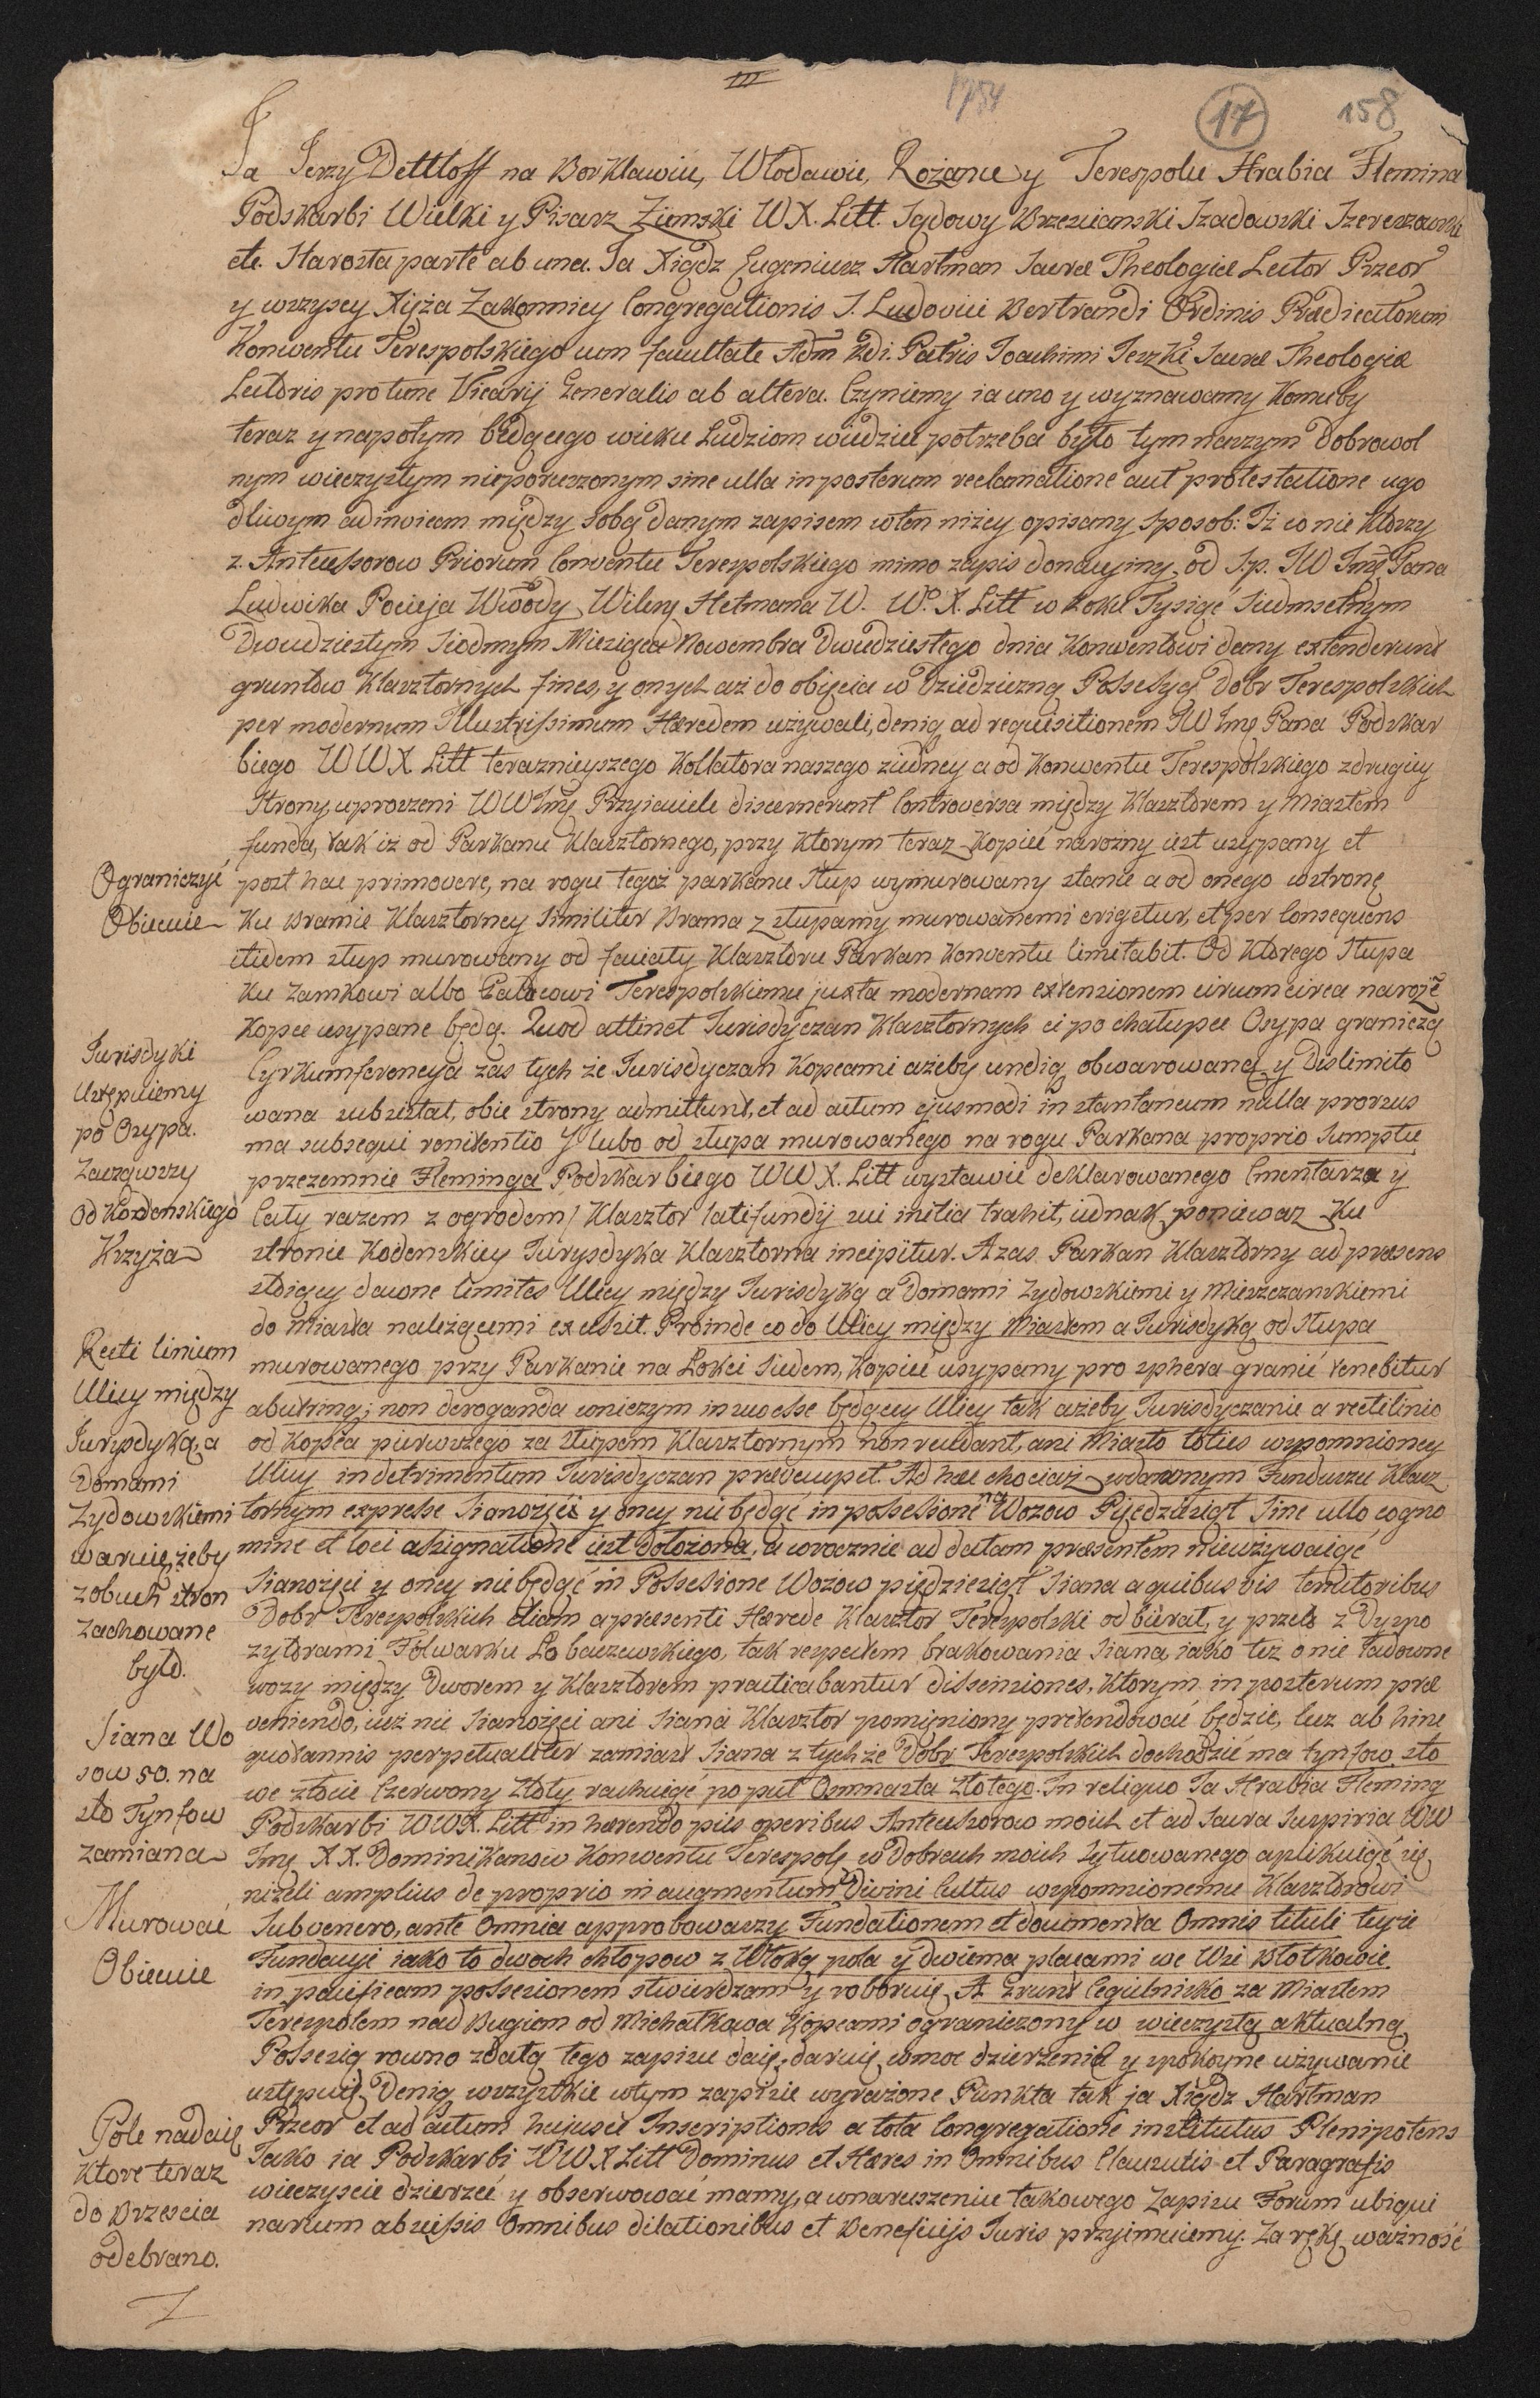 III
1754
17
158
Ja Jerzy Dettloff na Borklawiu, Włodawie, Rożance y Terespolu Hrabia Fleming
Podskarbi Wielki y Pisarz Ziemski W X. Litt. Sądowy Brzescianski Szadowski Szereszowski
etc. Starosta parte ab una. Ja Xiądz Eugeniusz Hartman Sacræ Theologiæ Lector Przeor
y wszyscy Xięża Zakonnicy Congregationis S. Ludovici Bertrandi Ordinis Prædicatorum
Konwentu Terespolskiego cum facultate Adm Rdi. Patris Joachimi Jeszki Sacræ Theologiæ
Lectoris pro tunc Vicarij Generalis ab altera. Czyniemy iawno y wyznawamy komuby
teraz y napotym będącego wieku Ludziom wiedzieć potrzeba było tym naszym dobrowol
nym wieczystym nieporuszonym sine ulla in posterum reclamatione aut protestatione ugo
dliwym ad invicem między sobą danym zapisem w ten niżey opisany sposob: Iż co nie ktorzy
z. Antecessorow Priorum Conventu Terespolskiego mimo zapis donacyiny od Sp. JW Jmę Pana
Ludwika Pocieja Wwody Wileń Hetmana W. W. X. Litt w Roku Tysiąc Siedmsetnym
Dwudziestym Siodmym Miesiąca Nowembra Dwudziestego dnia Konwentowi dany extenderunt
gruntow Klasztornych fines, y onych aż do obięcia w Dziedziczną Possesyą Dobr Terespolskich
per modernum Illustrissimum Hæredem używali, deniq ad requisitionem JW Jmę Pana Podskar
biego W W X Litt teraznieyszego Kollatora naszego ziedney a od Konwentu Terespolskiego z drugiey
Strony uproszeni WW Jmę Przyiaciele discernerunt Controversa między Klasztorem y Miastem
funda, tak iż od Parkanu Klasztornego, przy ktorym teraz Kopiec narożny iest usypany et
post hac primovere, na rogu tegoż parkanu Słup wymurowany stanie a od onego w stronę
Ku Bramie Klasztorney similiter Brama z słupamy murowanemi erigetur, et per Consequens
itidem słup murowany od faciaty Klasztoru Parkan Konwentu limitabit. Od Ktorego Słupa
Ku Zamkowi albo Pałacowi Terespolskiemu juxta modernam extensionem circum circa naroże
Kopce usypane będą. Quod attinet Jurisdyczan Klasztornych ci po chałupce Osypa graniczą
Cyrkumferencya zas tych że Jurisdyczan Kopcami ażeby undiq obwarowana y Dislimito
wana subsistat, obie strony admittunt, et ad actum ejusmodi in stantaneum nulla prorsus
ma subsequi renitentio y lubo od słupa murowanego na rogu Parkana proprio Sumptu
przezemnie Fleminga Podskarbiego W W X. Litt wystawic deklarowanego Cmentarza y
Cały razem z ogrodem / Klasztor latifundij sui initia trahit, iednak poniewaz Ku
stronie Kodenskiey Jurysdyka Klasztorna incipitur. A zas Parkan Klasztorny ad præsens
stoiący dawne limites Ulicy między Jurisdyką a Domami Zydowskiemi y Mieszczanskiemi
do Miasta należącemi excessit. Proinde co do Ulicy między Miastem a Jurisdyką od Słupa
murowanego przy Parkanie na Łokci Siedem, Kopiec usypany pro sphera granic tenebitur
abutring; non deroganda wniczym in suo esse będącey Ulicy tak ażeby Jurisdyczanie a rectilinio
od Kopca pierwszego za słupem Klasztornym non recedant, ani Miasto toties wspomnioney
Ulicy in detrimentum Jurisdyczan præoccupet. Ad hæc chociaż w danym Funduszu Klasz
tornym expresse Sianożęci y oney nie będąc in possessione na Wozow Pięćdziesiąt Sine ullo cogno
mine et loci assignatione iest dołożona, a corocznie ad datam præsentem nieużywaiąc
Sianożęci y oney nie będąc in Possesione Wozow pięćdziesiąt Siana a quibusvis territoribus
Dobr Terespolskich etiam a præsenti Hærede Klasztor Terespolski odbierał, y przeto z Dyspo
zytorami Folwarku Łobaczewskiego, tak respectem brakowania Siana, iako też o nie ładowne
wozy między Dworem y Klasztorem practicabantur dissensiones. Ktorym in posterum præ
veniendo, iuż nie Sianożęci ani Siana Klasztor pomięniony pretendować będzie, lecz ab hinc
quotannis perpetualiter zamiast Siana z tych że Dobr Terespolskich dochodzić ma tynfow sto
we złocie Czerwony Złoty rachuiąc po puł Osmnasta złotego. In reliquo Ja Hrabia Fleming
Podskarbi W W X. Litt in hærendo piis operibus Antecessorow moich et ad Sacra Suspiria WW
Jmę XX. Dominikanow Konwentu Terespolę w Dobrach moich Sytuowanego aplikuiąc się
niżeli amplius de proprio in augmentum Divini Cultus wspomnionemu Klasztorowi
Subvenero, ante Omnia approbowaszy Fundationem et documenta Omnis tituli teyże
Fundacyi iako to dwoch chłopow z Włoką pola y dwiema placami we Wsi Błotkowie
in pacificam possesionem stwierdzam y roboruię. A Grunt Cegielnisko za Miastem
Terespolem nad Bugiem od Michałkowa Kopcami ograniczony w wieczystą aktualną
Possesią rowno z datą tego zapisu daię, daruię, w moc dzierżenia y spokoyne używanie
ustępuię. Deniq wszystkie w tym zapisie wyrażone Punkta tak ja Xiądz Hartman
Przeor et ad actum hujusce Inscriptionis a tota Congregatione institutus Plenipotens
Jako ia Podskarbi W W X Litt Dominus et Hæres in Omnibus Clausulis et Paragrafis
wieczyscie dzierzéc y obserwować mamy, a w naruszeniu takowego Zapisu Forum ubiqui
narium abscissis Omnibus dilationibus et Beneficijs Juris przyimuiemy. Za ręką ważność
Ograniczyć
Obiecuie
Jurisdyki
Ustępuiemy
po Osypa.
Zacząwszy
Od Kodenskiego
Krzyża
Recti linium
Ulicy między
Jurysdyką, a
Domami
Zydowskiemi
waruię, żeby
z obuch stron
Zachowane
było.
Siana Wo
zow 50. na
sto Tynfow
zamiana
Murować
Obiecuie
Pole nadaię
Ktore teraz
do Brzescia
odebrano.